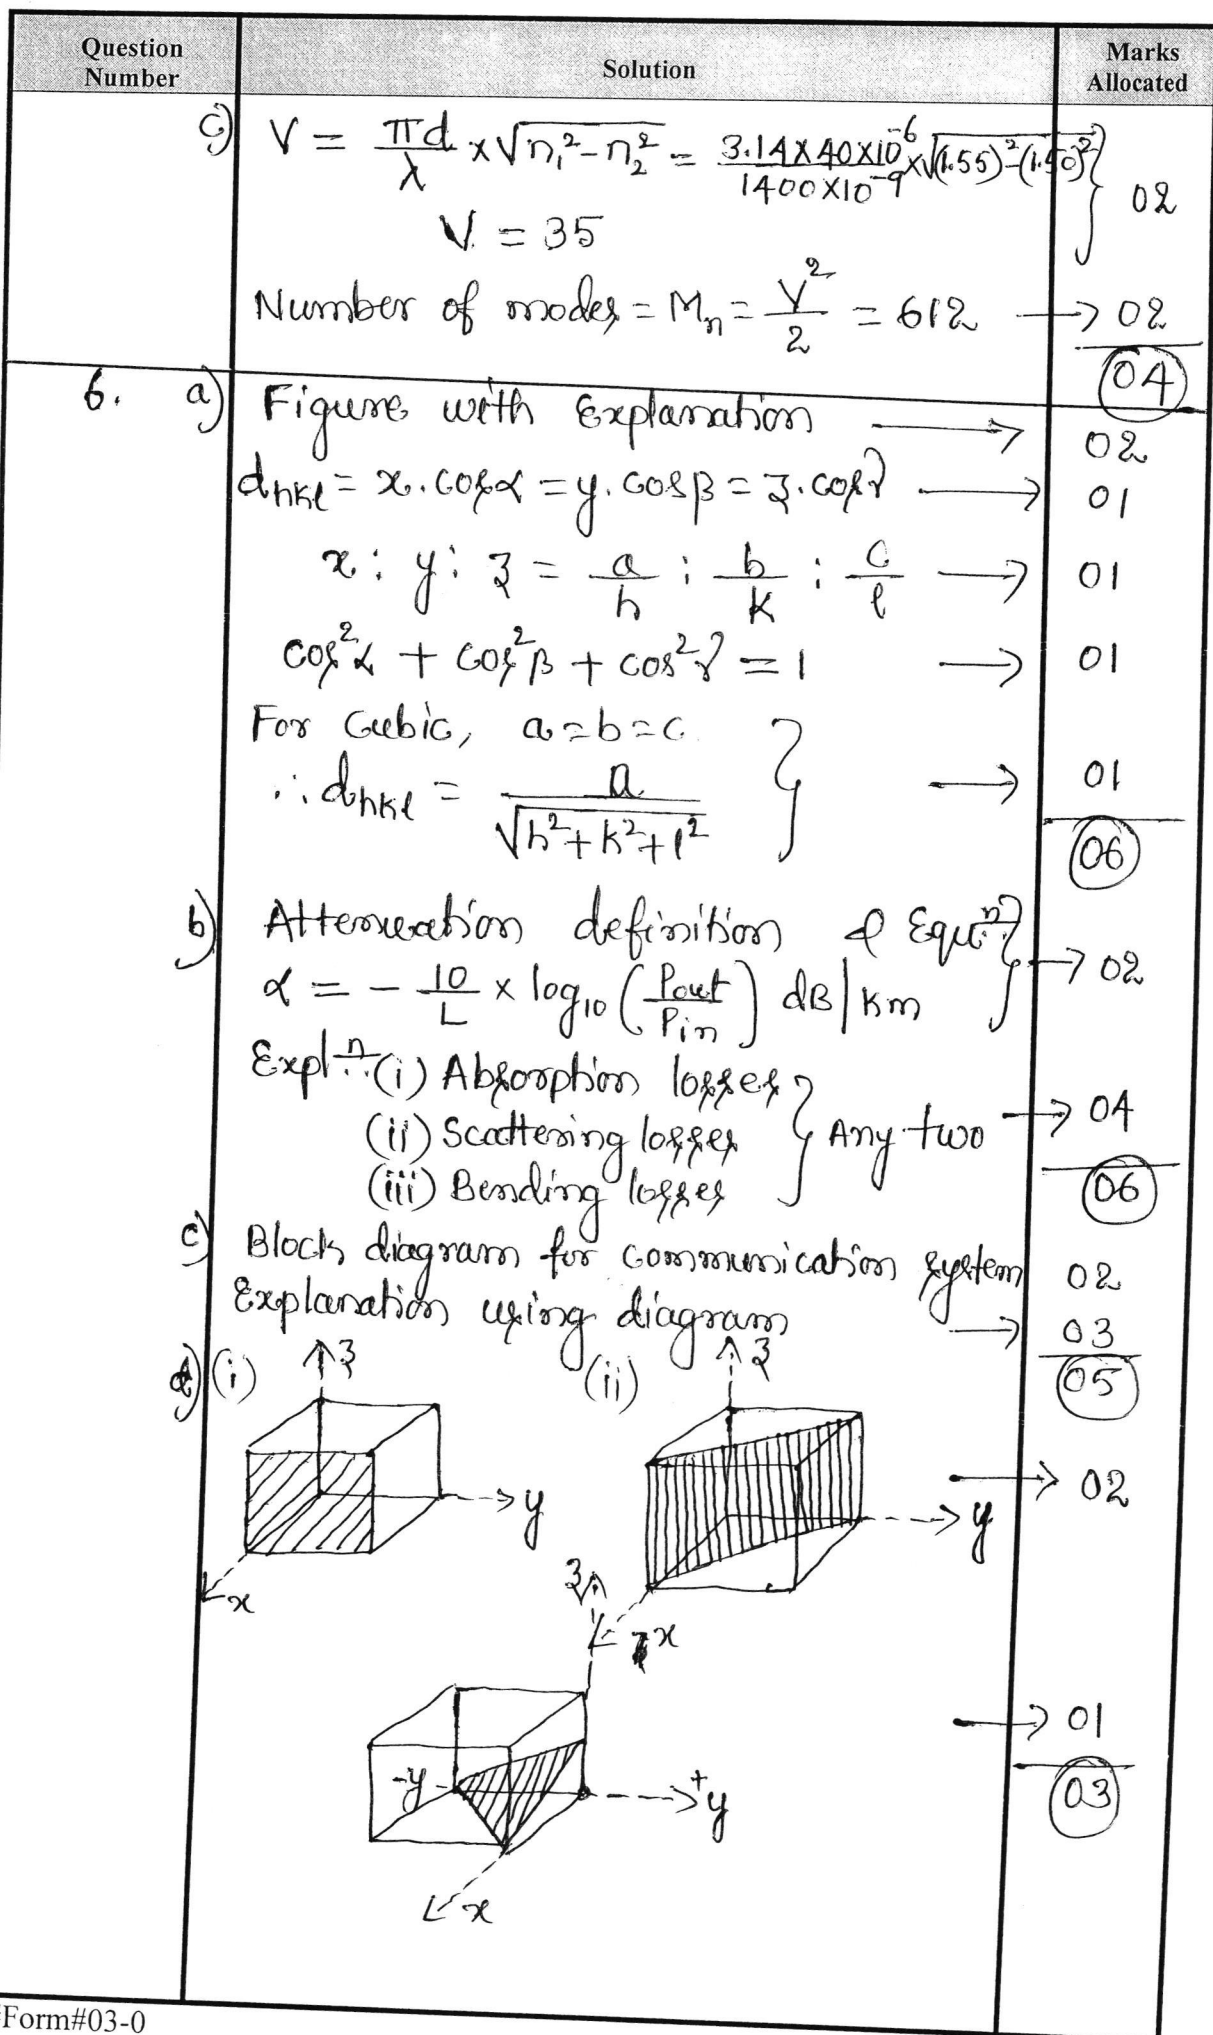 Question Number Solution Marks Allocated
c) V = πd/λ × √(n₁² − n₂²) = 3.14 × 40 × 10⁻⁶ / 1400 × 10⁻⁹ × √((1.55)² − (1.50)²) } 02
V = 35
Number of modes = Mₙ = V²/2 = 612 → 02
(04)
6. a) Figure with Explanation → 02
dhkl = x.cosα = y.cosβ = z.cosγ → 01
x : y : z = a/h : b/k : c/l → 01
cos²α + cos²β + cos²γ = 1 → 01
For Cubic, a=b=c
∴ dhkl = a/√(h²+k²+l²) } → 01
(06)
b) Attenuation definition & Equⁿ } → 02
α = − 10/L × log₁₀ (Pout/Pin) dB/km
Explⁿ (i) Absorption losses
(ii) Scattering losses } Any two → 04
(iii) Bending losses (06)
c) Block diagram for communication system 02
Explanation using diagram → 03
(05)
d) (i) z (ii) z
→ 02
y y
x x
z
→ 01
-y +y (03)
x
Form#03-0